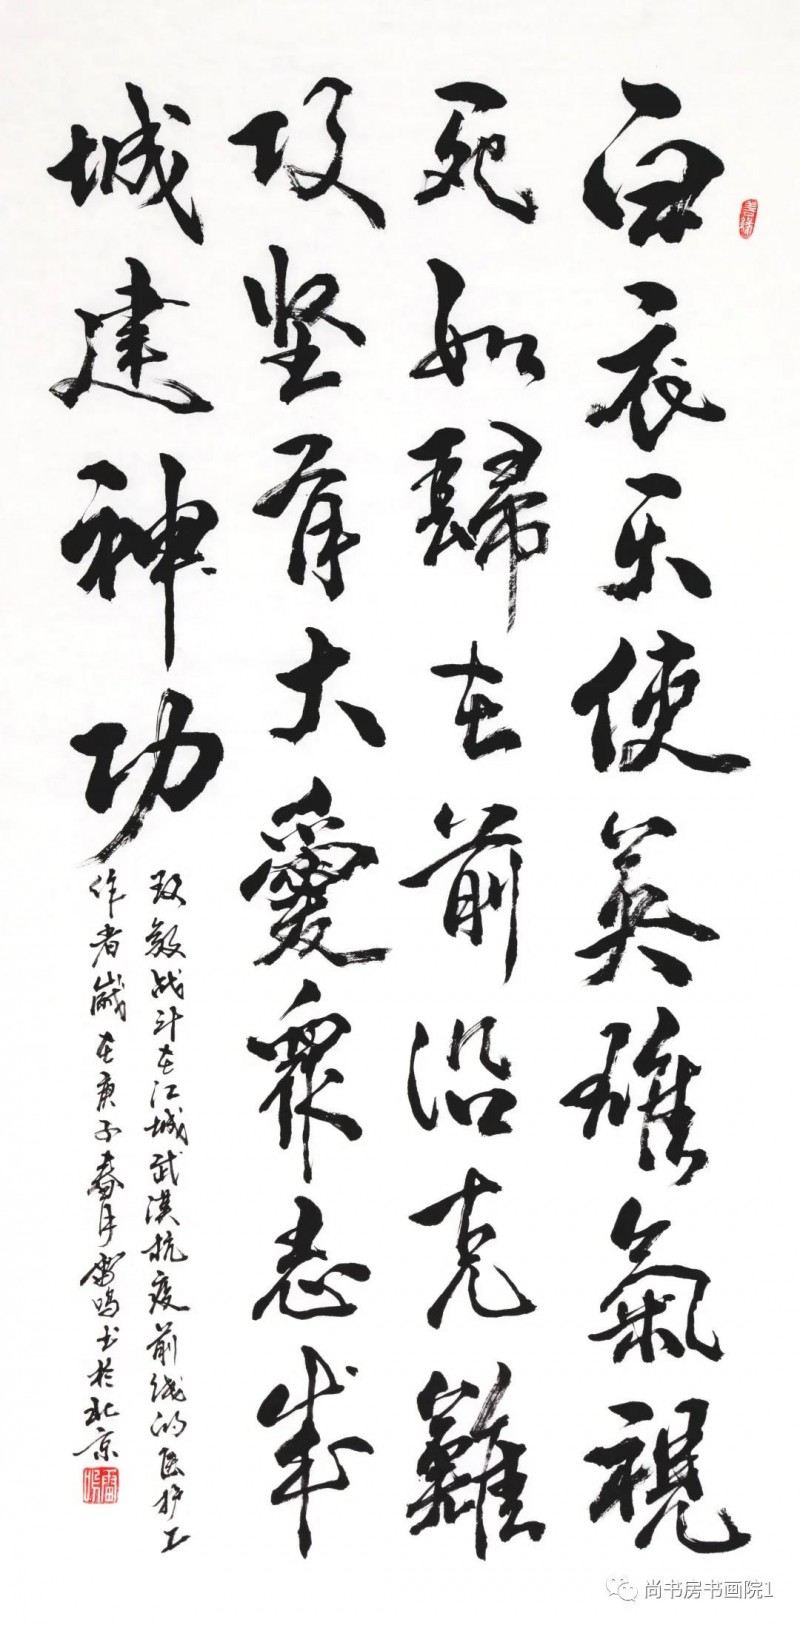 白衣天使英雄氣視
死如歸在前沿克難
攻坚有大愛眾志成
城建神功
致敬战斗在江城武漢抗疫前线的医护工
作者歲在庚子春月雷鸣书於北京
雷鸣
尚书房书画院1